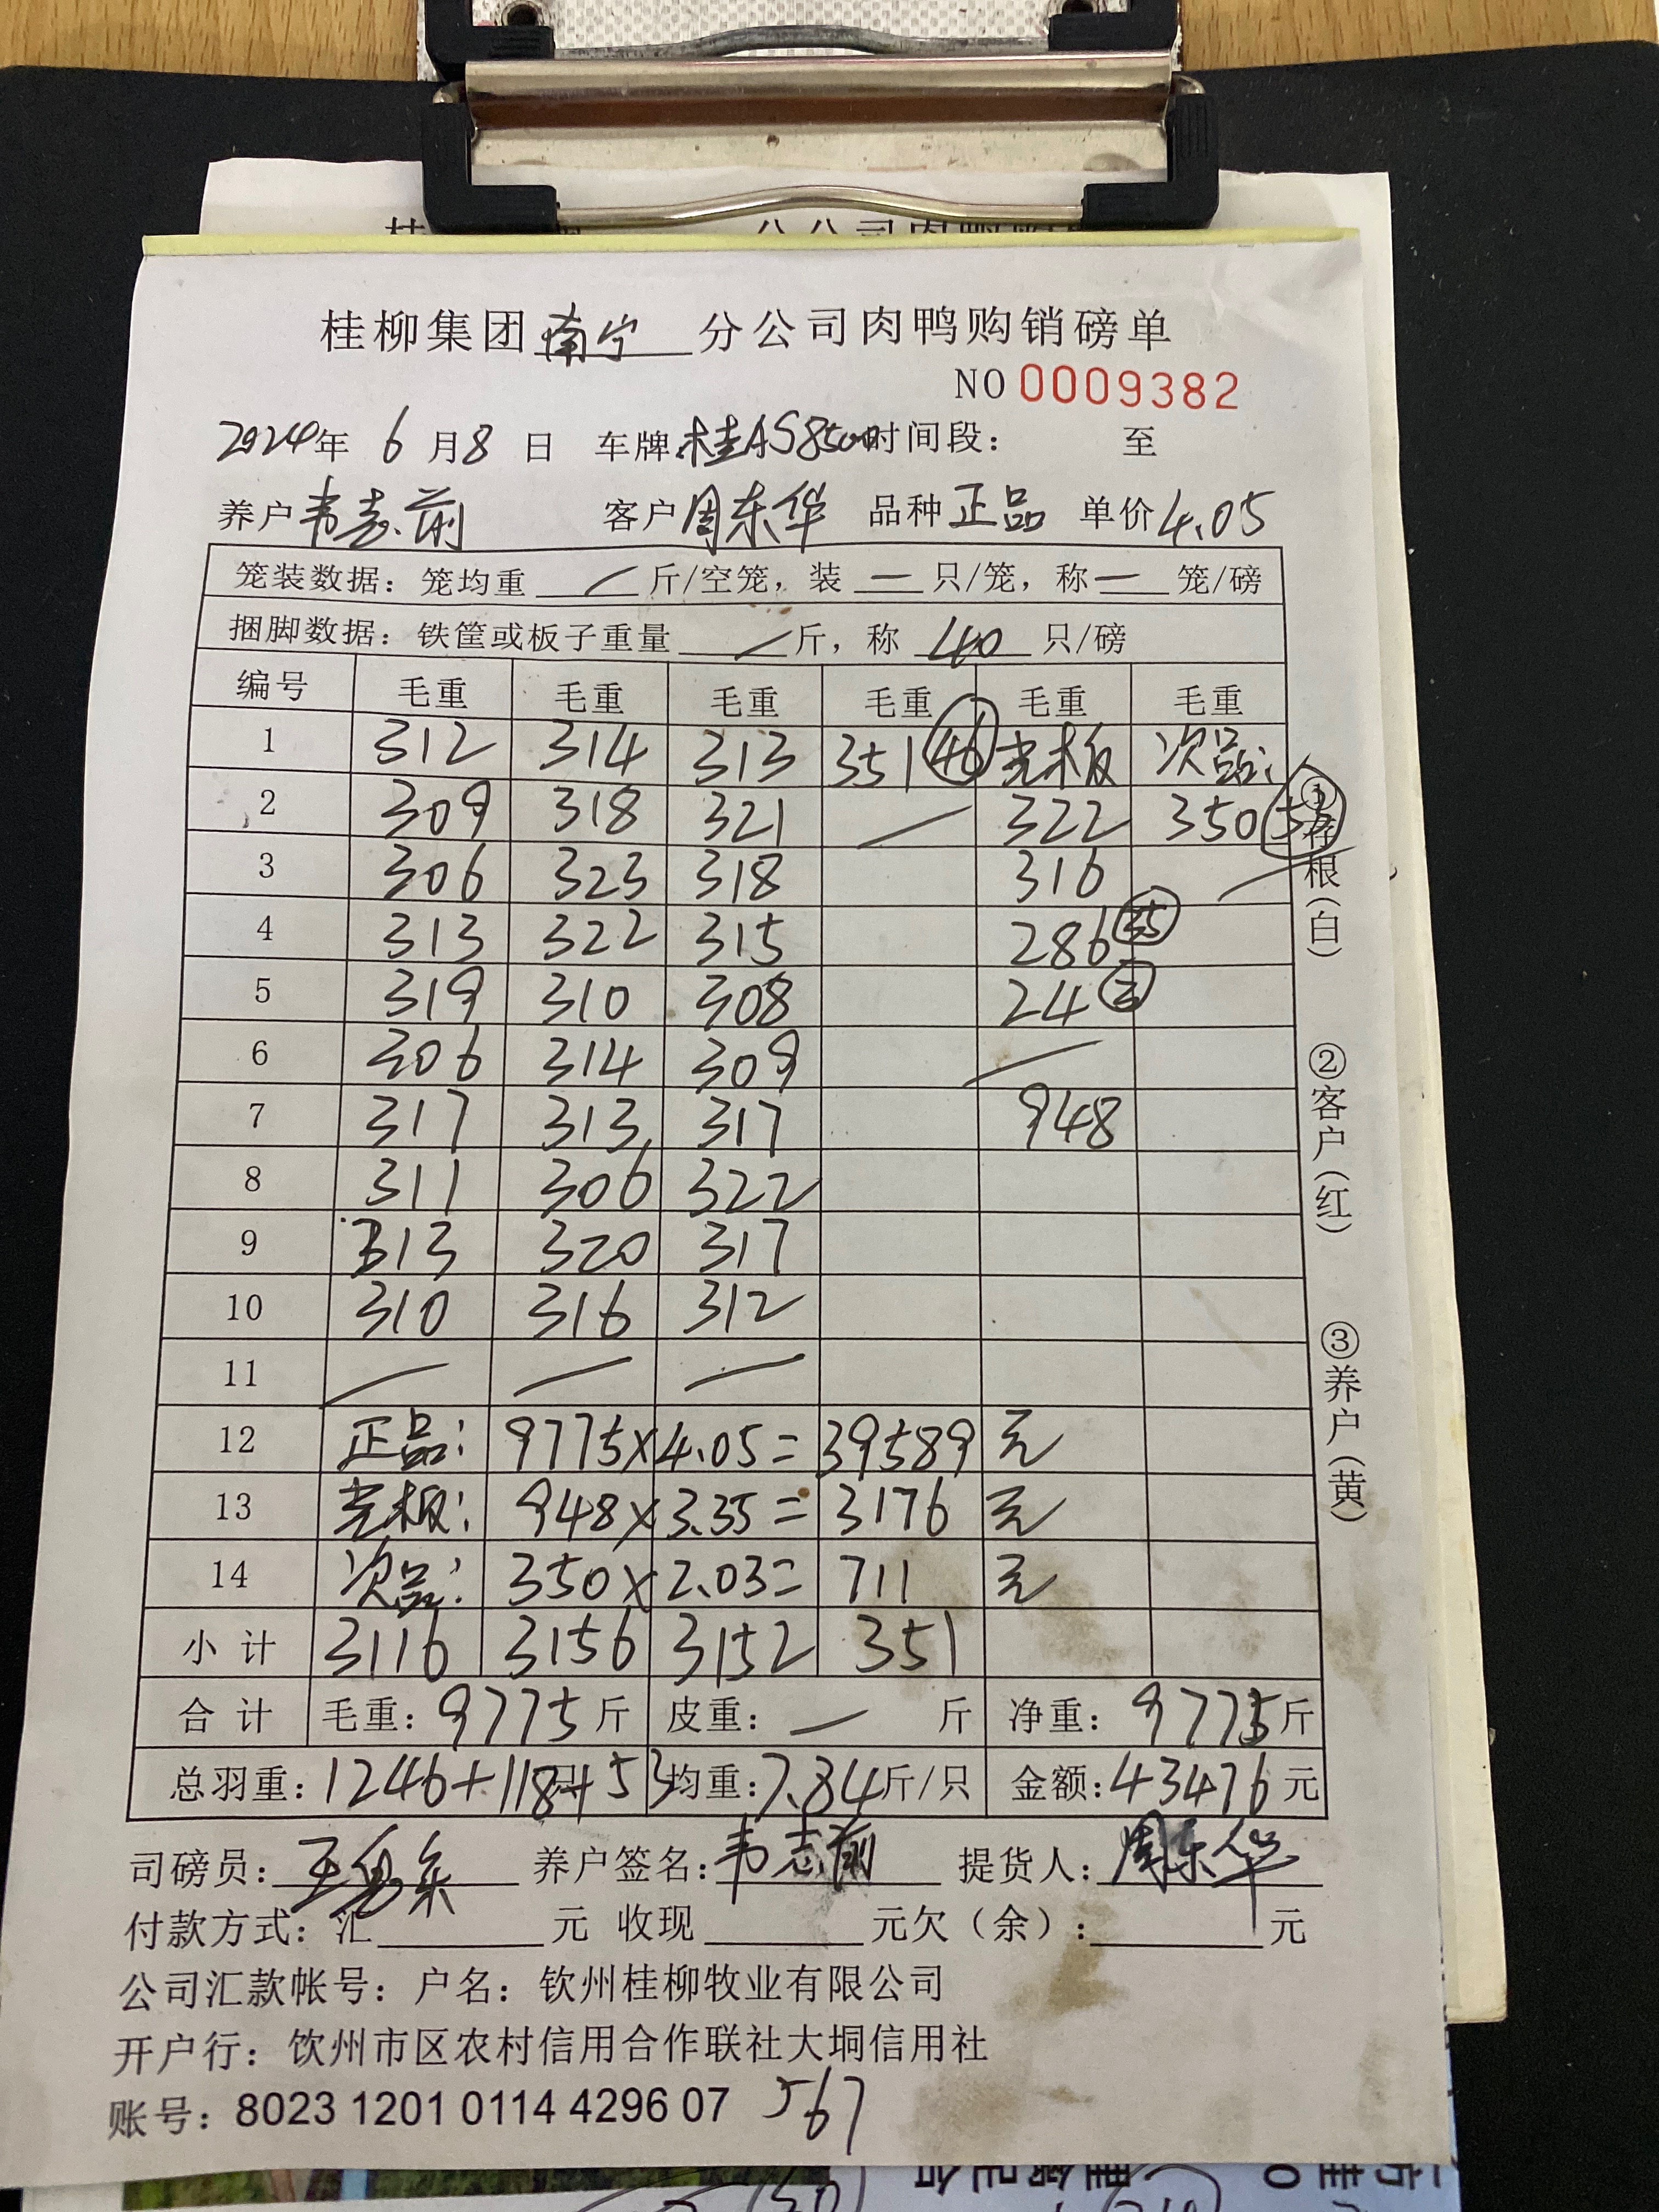 桂柳集团南宁分公司肉鸭购销磅单
NO 0009382
2024年 6月8日 车牌:桂AS850 时间段: 至
养户 韦志前 客户 周东华 品种 正品 单价 4.05
笼装数据: 笼均重 — 斤/空笼, 装 — 只/笼, 称 — 笼/磅
捆脚数据: 铁筐或板子重量 — 斤, 称 40 只/磅
编号 毛重 毛重 毛重 毛重 毛重 毛重
1 312 314 313 351 46 光板 次品:
2 309 318 321 — 322 350 53
3 306 323 318 316 —
4 313 322 315 286 35
5 319 310 308 24
6 306 314 309 —
7 317 313 317 948
8 311 306 322
9 313 320 317
10 310 316 312
11 — — —
12 正品: 9775×4.05= 39589 元
13 光板: 948×3.35= 3176 元
14 次品: 350×2.03= 711 元
小计 3116 3156 3152 351
合计 毛重: 9775 斤 皮重: — 斤 净重: 9775 斤
总羽重: 1246+118+53 只 均重: 7.84 斤/只 金额: 43476 元
司磅员: 养户签名: 韦志前 提货人: 周东华
付款方式: 汇 元 收现 元欠(余): 元
公司汇款帐号: 户名: 钦州桂柳牧业有限公司
开户行: 饮州市区农村信用合作联社大垌信用社
账号: 8023 1201 0114 4296 07 567
①存根(白)
②客户(红)
③养户(黄)